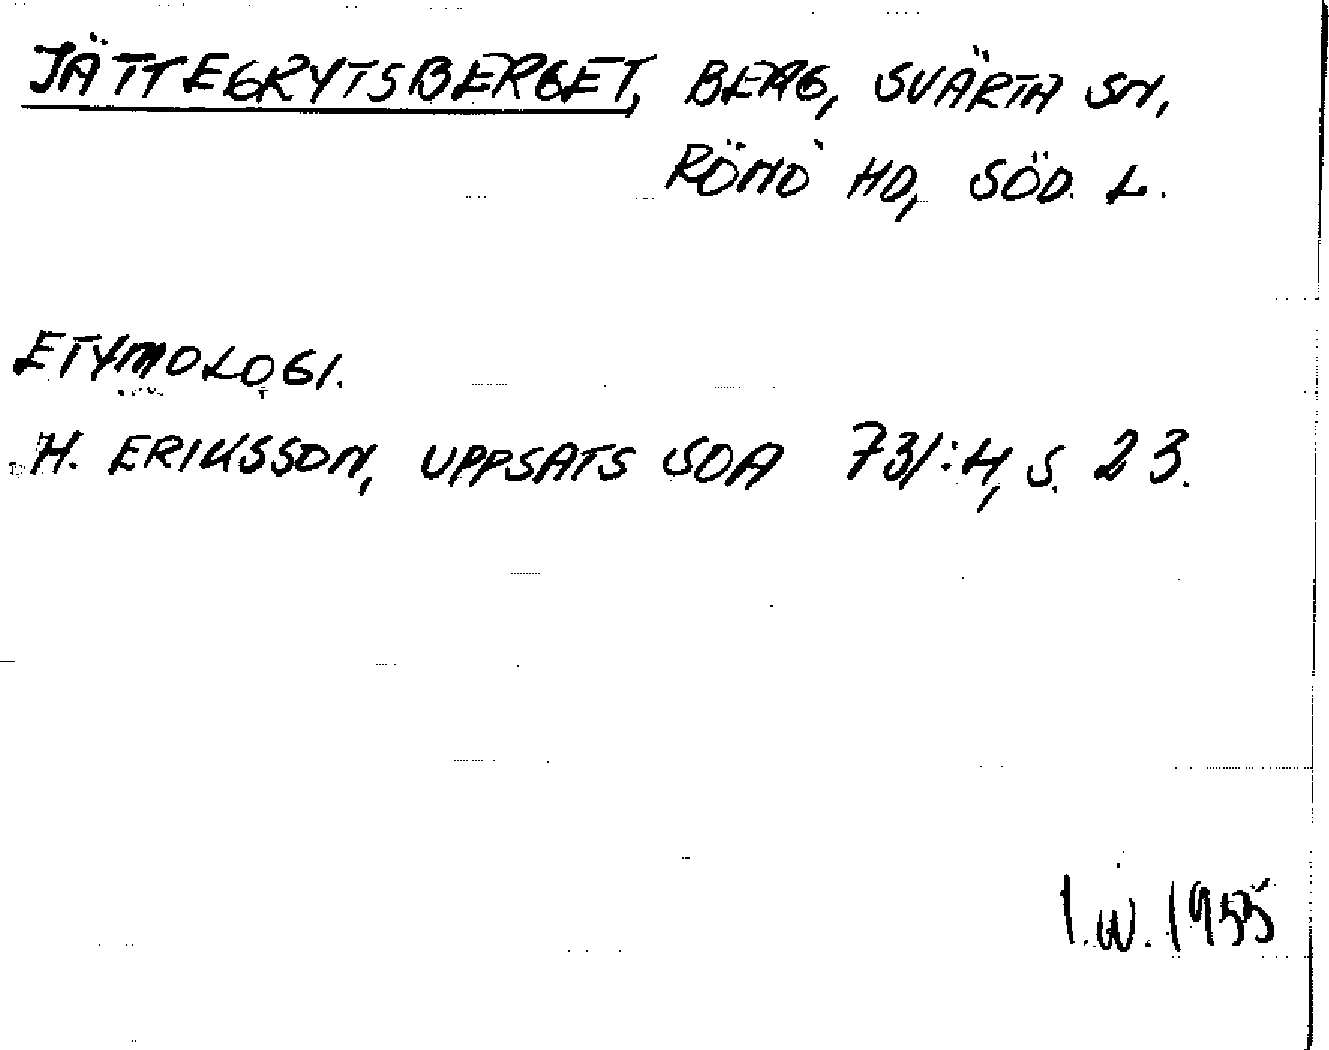 JÄTTEGRYTSBERGET, BERG, SVÄRTA SN,
RÖNÖ HD, SÖD. L.
ETYMOLOGI.
H. ERIKSSON, UPPSATS SOA 731:4, S. 23.
I.W. 1955